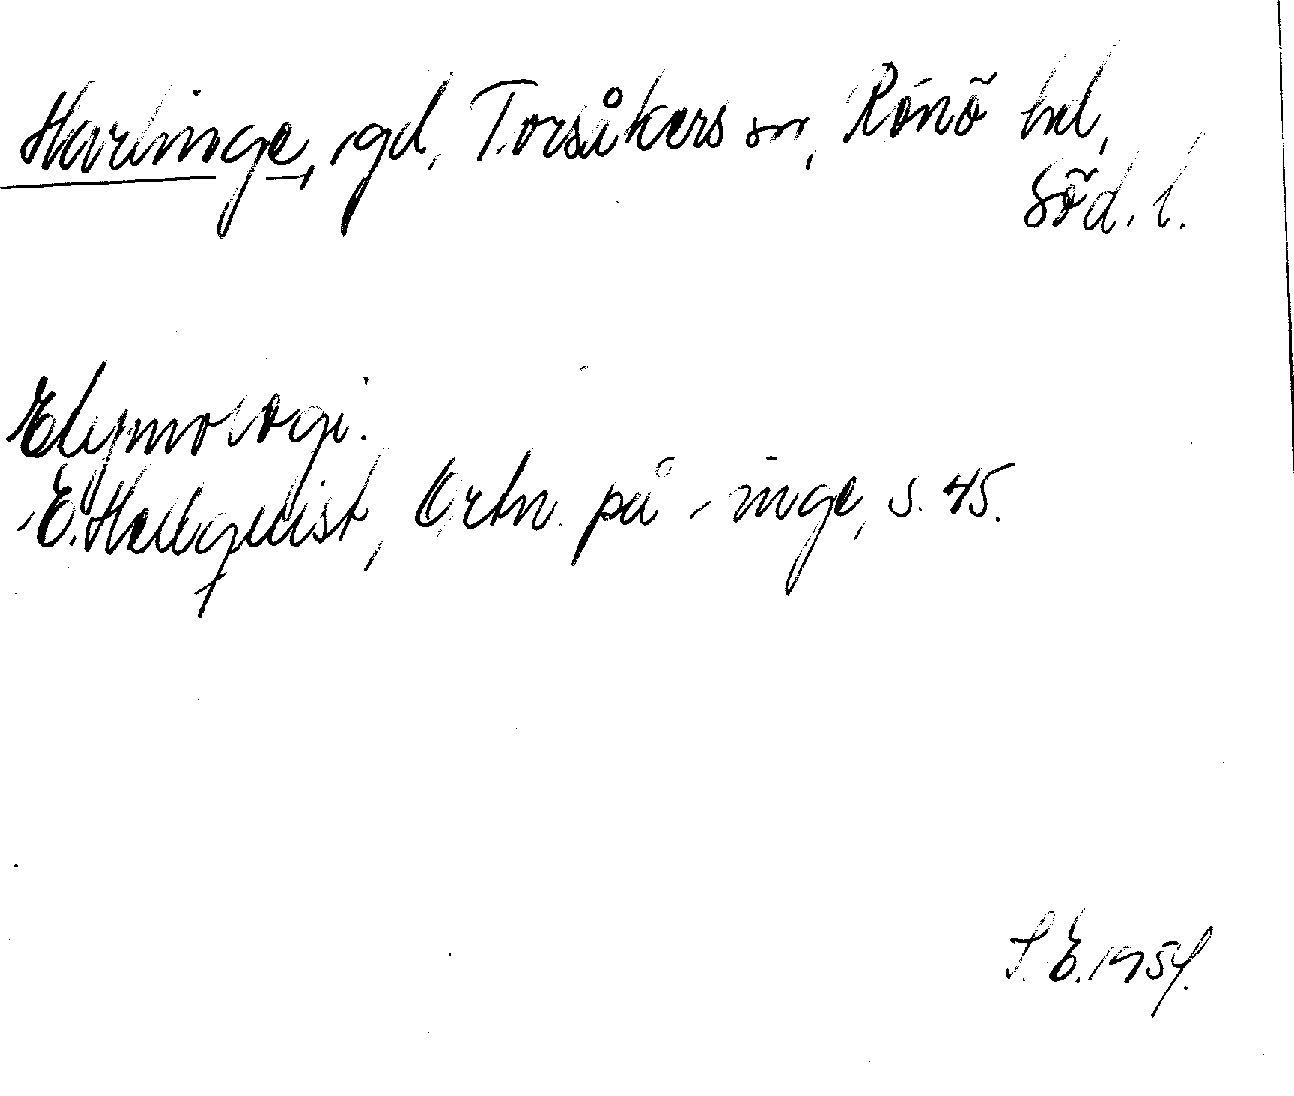 Harlinge, gd, Torsåkers sn, Rönö hd,
Söd. l.
Etymologi.
E. Hellquist, Ortn. på -inge, s. 45.
S.E. 1954.